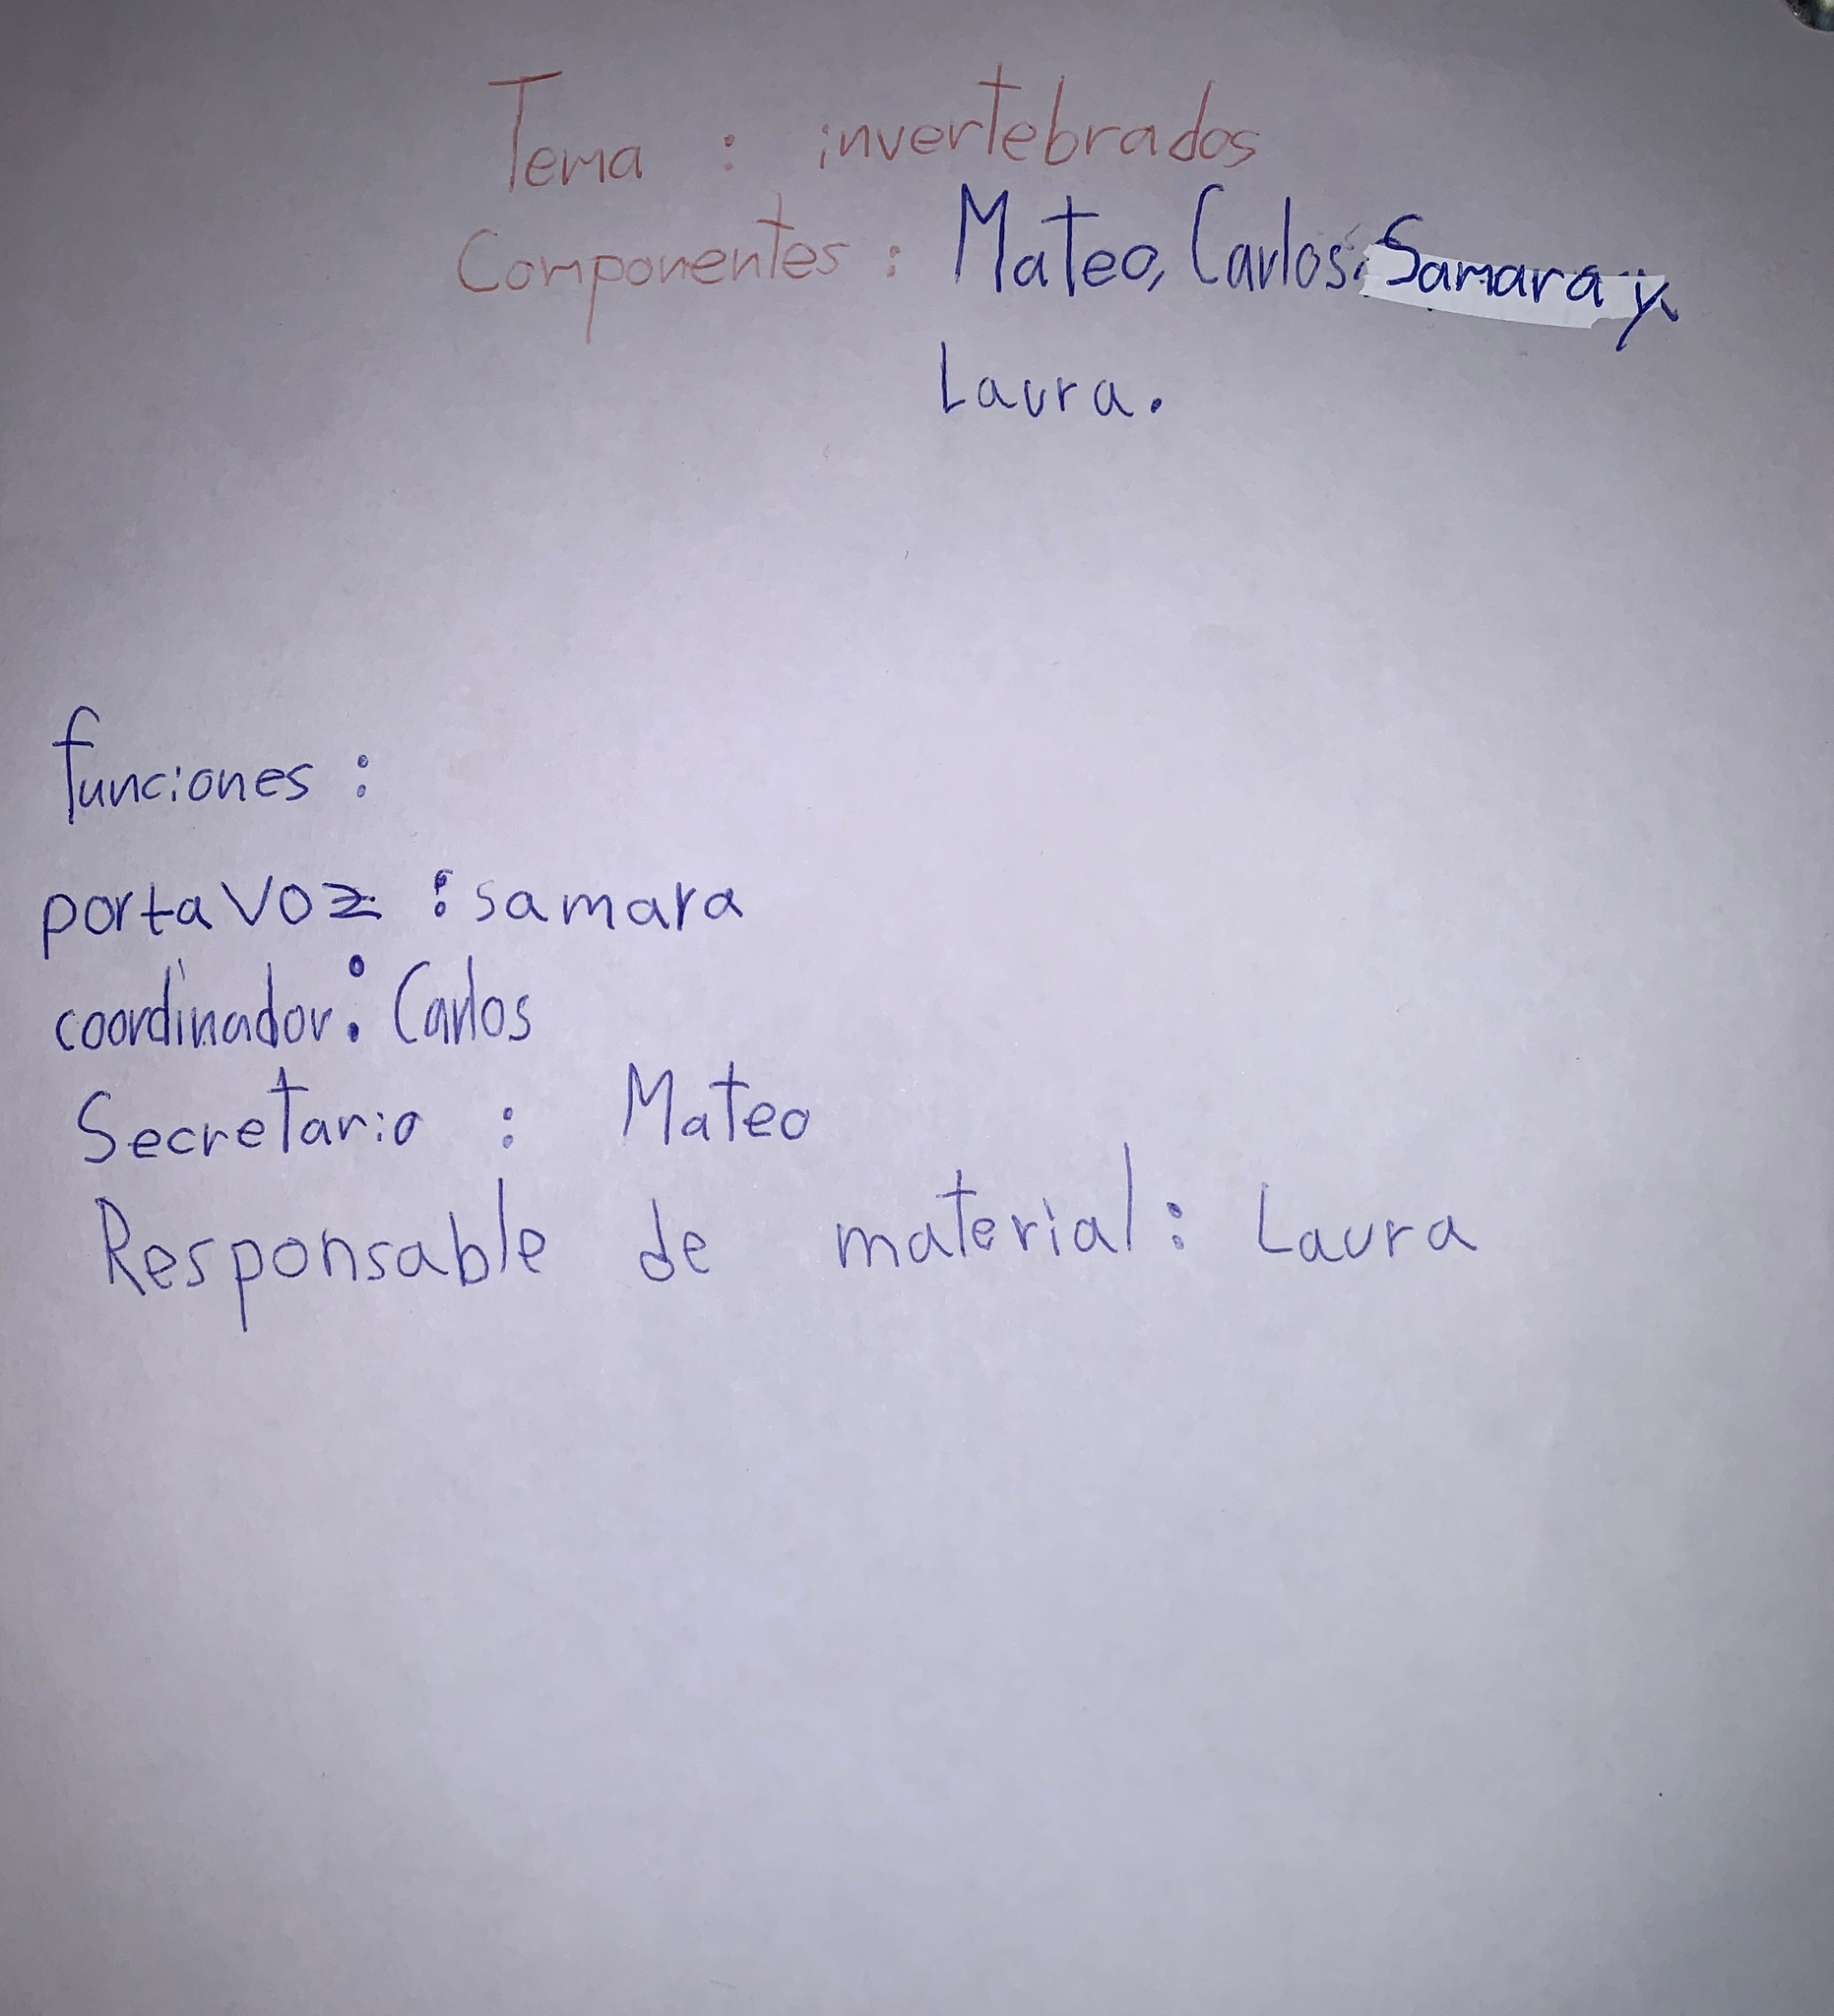 Tema : invertebrados
Componentes : Mateo, Carlos, Samara y
Laura.
funciones :
portavoz : samara
coordinador : Carlos
Secretario : Mateo
Responsable de material : Laura